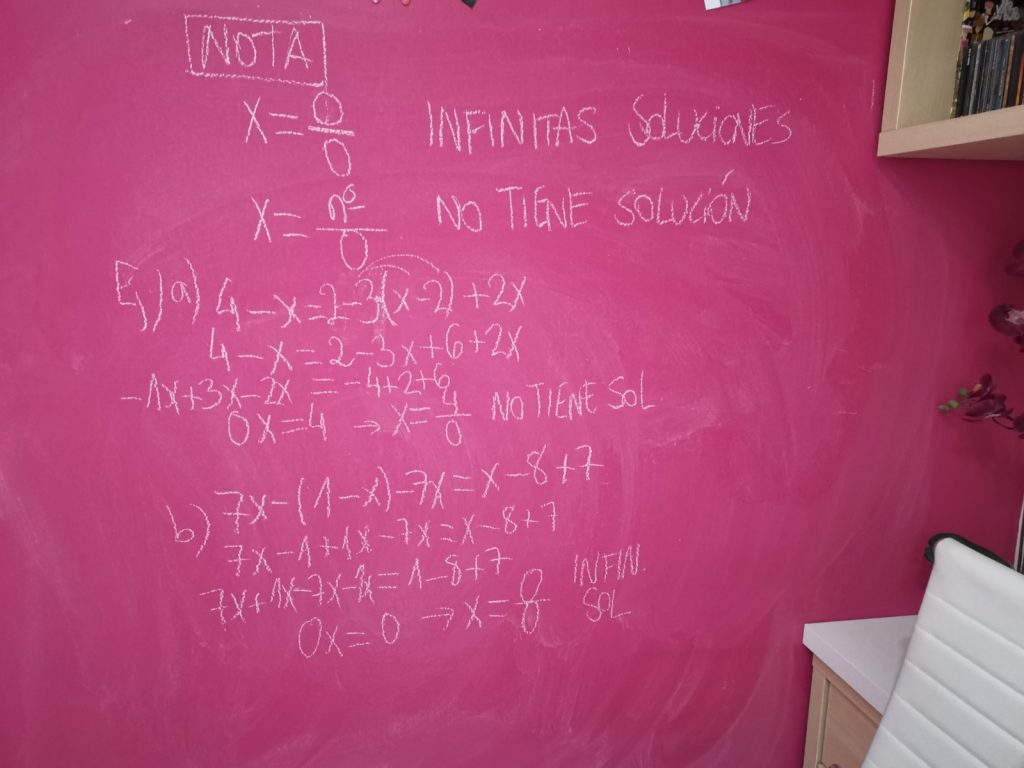 NOTA
X = 0/0 INFINITAS SOLUCIONES
X = nº/0 NO TIENE SOLUCIÓN
5) a) 4 - x = 2 - 3(x - 2) + 2x
4 - x = 2 - 3x + 6 + 2x
-1x + 3x - 2x = -4 + 2 + 6
0x = 4 → x = 4/0 NO TIENE SOL
b) 7x - (1 - x) - 7x = x - 8 + 7
7x - 1 + 1x - 7x = x - 8 + 7
7x + 1x - 7x - 1x = 1 - 8 + 7
0x = 0 → x = 0/0 INFIN. SOL